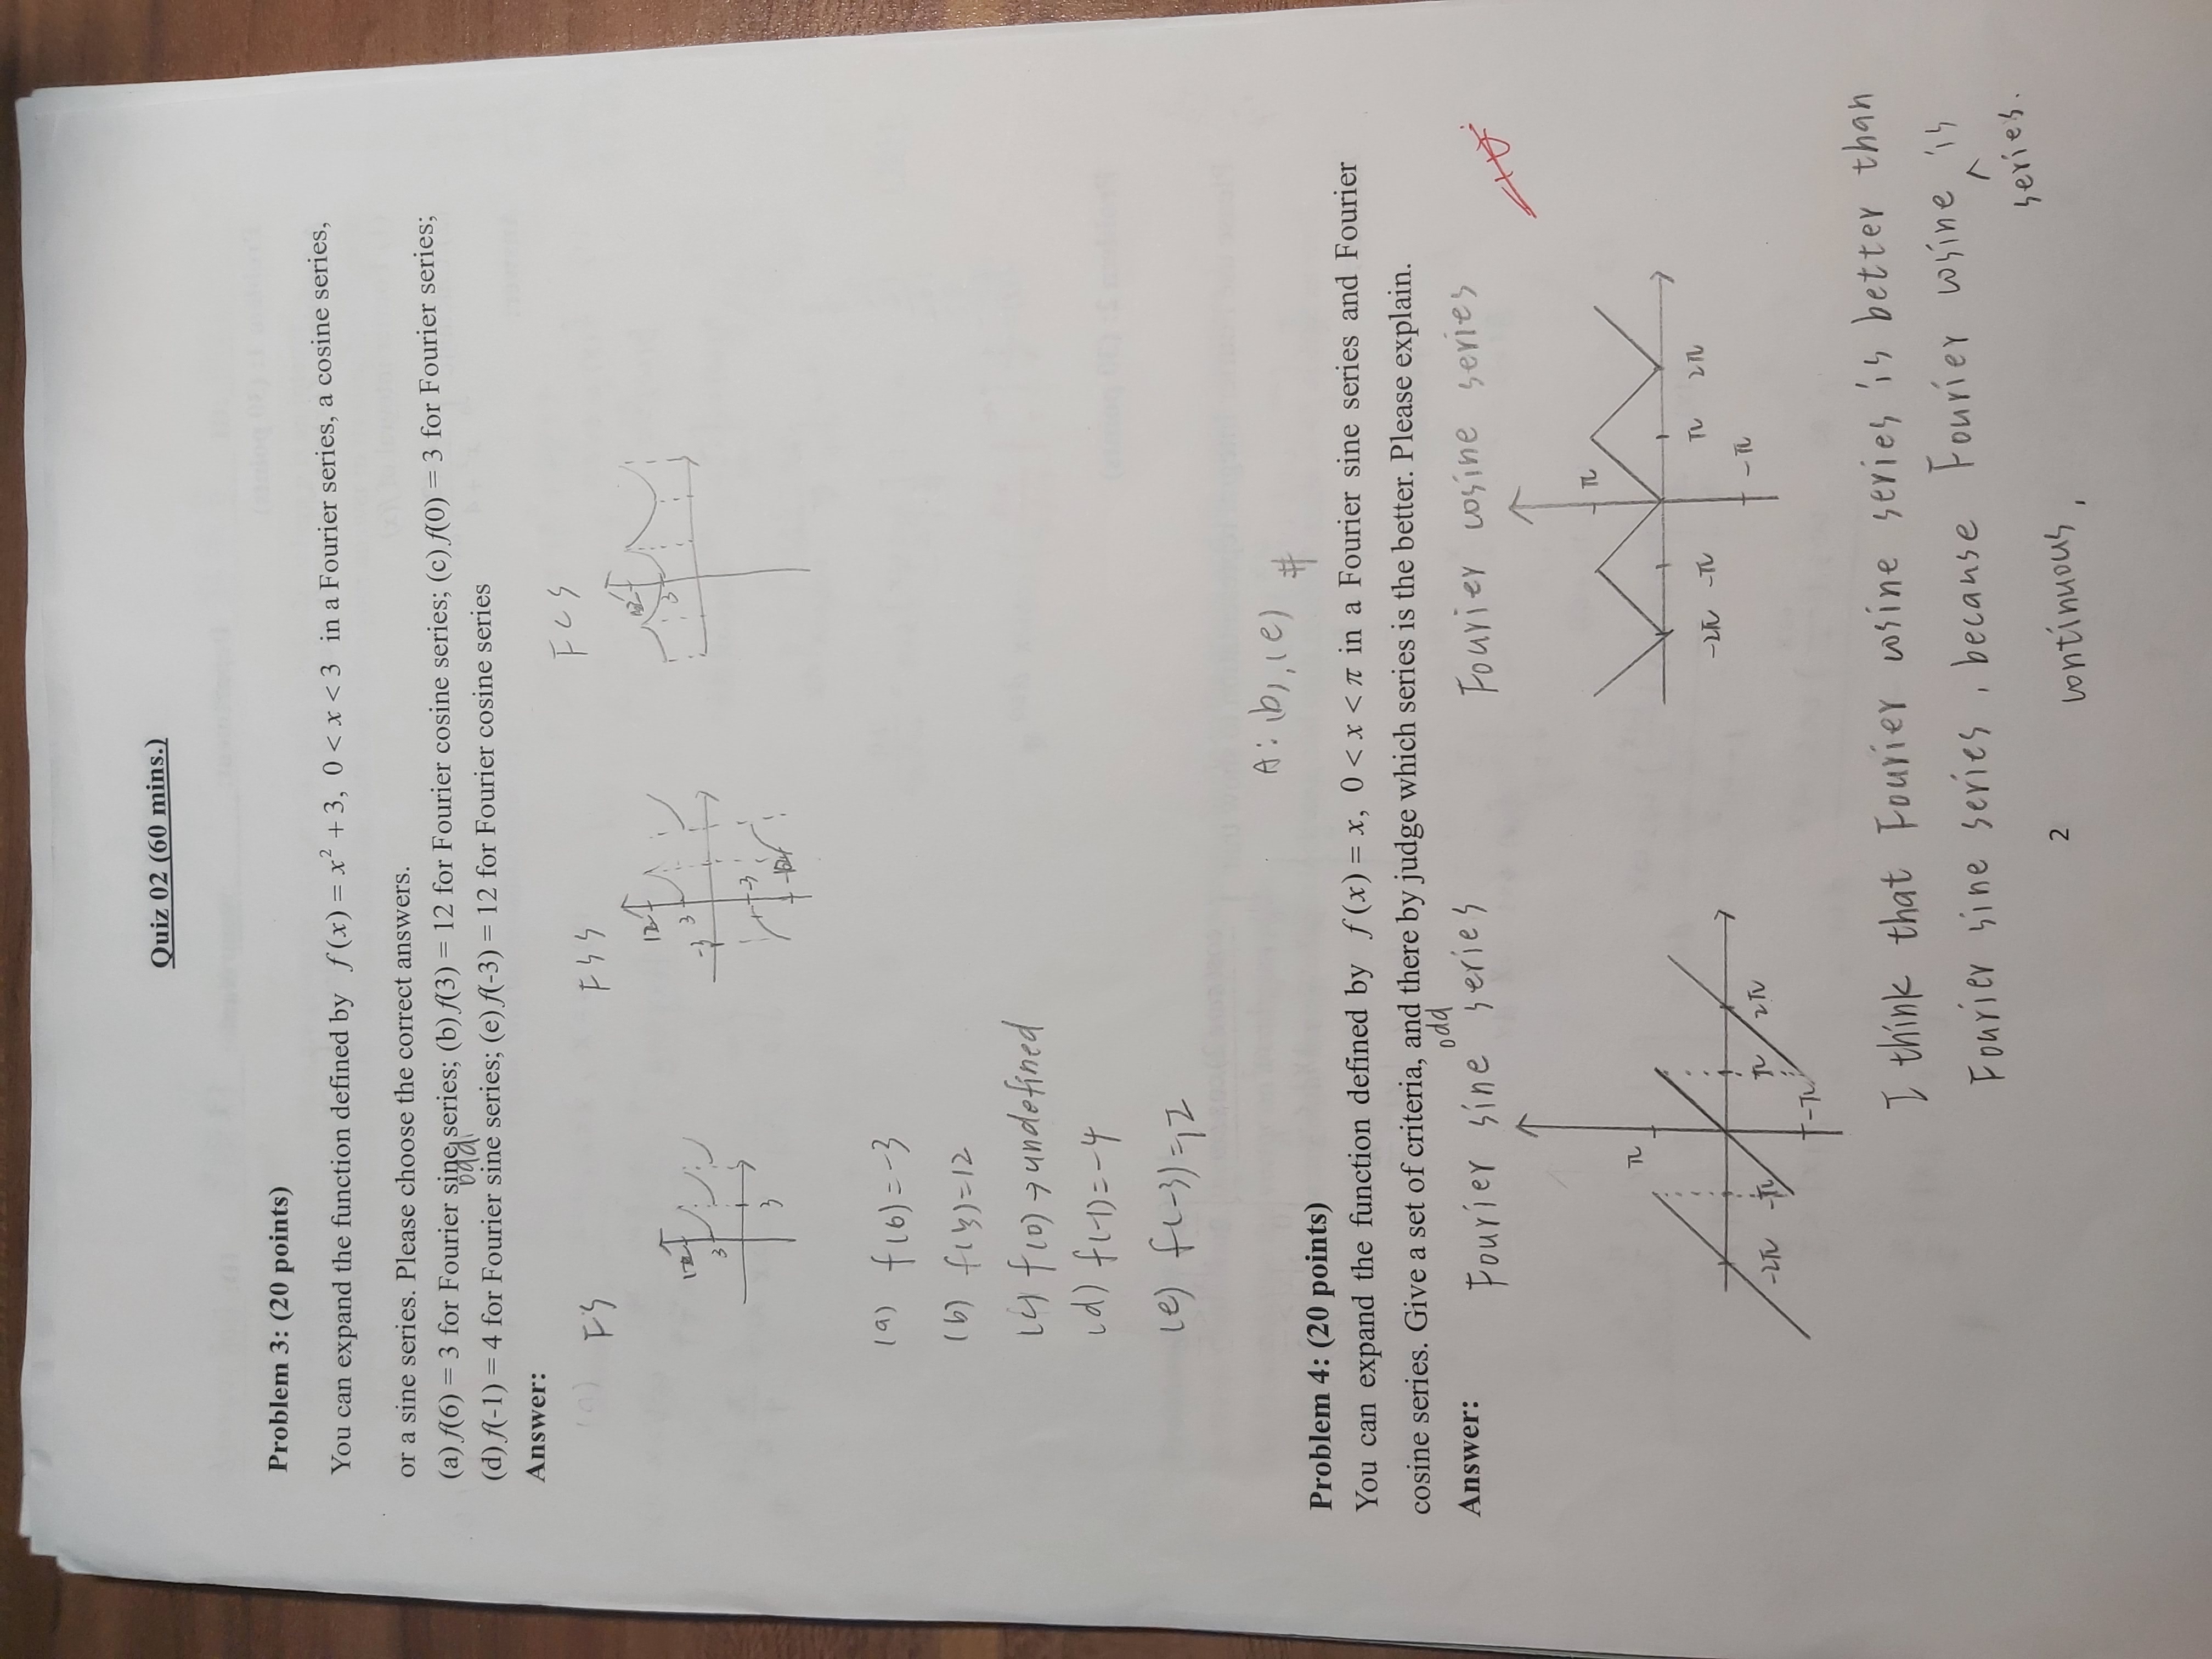 Quiz 02 (60 mins.)
Problem 3: (20 points)
You can expand the function defined by f(x) = x² + 3, 0 < x < 3 in a Fourier series, a cosine series,
or a sine series. Please choose the correct answers.
(a) f(6) = 3 for Fourier sine series; (b) f(3) = 12 for Fourier cosine series; (c) f(0) = 3 for Fourier series;
odd
(d) f(-1) = 4 for Fourier sine series; (e) f(-3) = 12 for Fourier cosine series
Answer:
FS FSS FCS
12 3 3
12 3 -3 -3
12 3
(a) f(6)=-3
(b) f(3)=12
(c) f(0)→undefined
(d) f(-1)=-4
(e) f(-3)=12
A: (b), (e) #
Problem 4: (20 points)
You can expand the function defined by f(x) = x, 0 < x < π in a Fourier sine series and Fourier
cosine series. Give a set of criteria, and there by judge which series is the better. Please explain.
odd
Answer: Fourier sine series Fourier cosine series
π π
-2π -π π 2π -2π -π π 2π
-π -π
I think that Fourier cosine series is better than
Fourier sine series, because Fourier cosine is
series.
continuous,
2